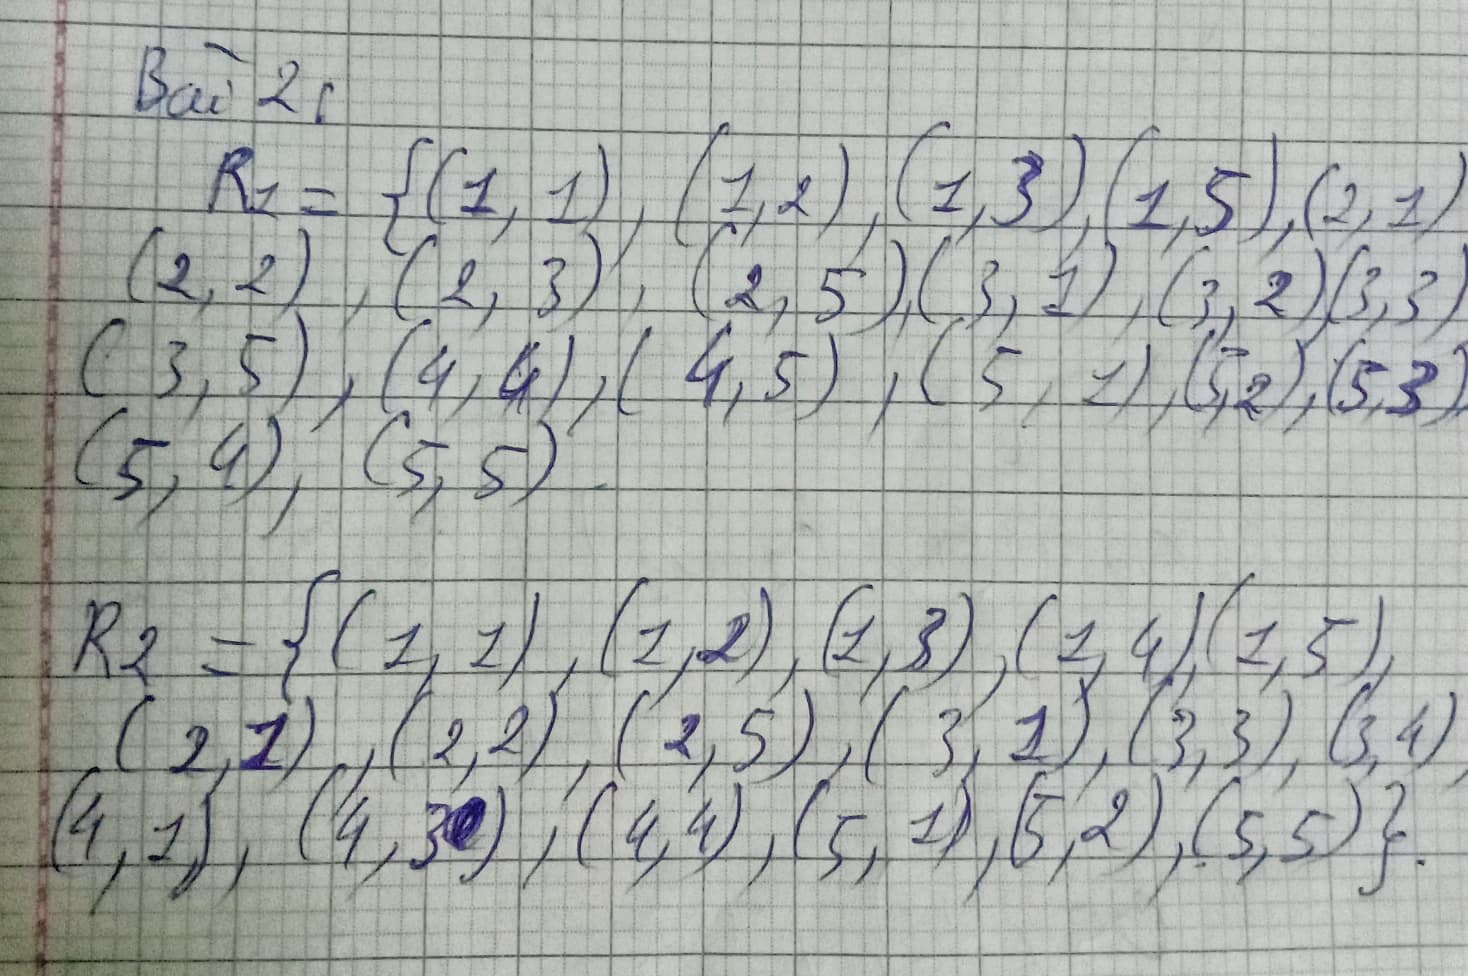 Bài 2:
R1 = {(1, 1), (1,2), (1,3), (1,5), (2,1)
(2,2), (2,3), (2,5), (3,1), (3,2)(3,3)
(3,5), (4,4), (4,5), (5,1), (5,2), (5,3)
(5,4), (5,5).
R2 = {(1,1), (1,2), (1,3), (1,4), (1,5),
(2,1), (2,2), (2,5), (3,1), (3,3), (3,4),
(4,1), (4,3), (4,4), (5,1), (5,2), (5,5)}.